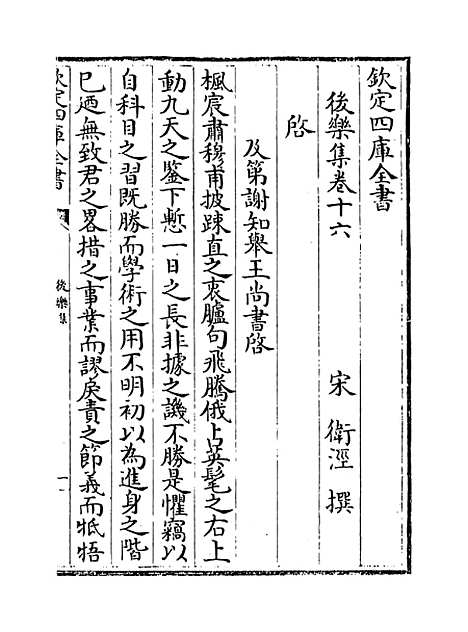 欽定四庫全書
後樂集卷十六
宋　衛涇　撰
啓
及第謝知舉王尚書啓
楓宸肅穆甫披踈直之衷臚句飛騰俄占英髦之右上
動九天之鑒下慙一日之長非據之譏不勝是懼竊以
自科目之習既勝而學術之用不明初以為進身之階
已廼無致君之畧措之事業而謬戾責之節義而牴牾
欽定四庫全書
後樂集
一